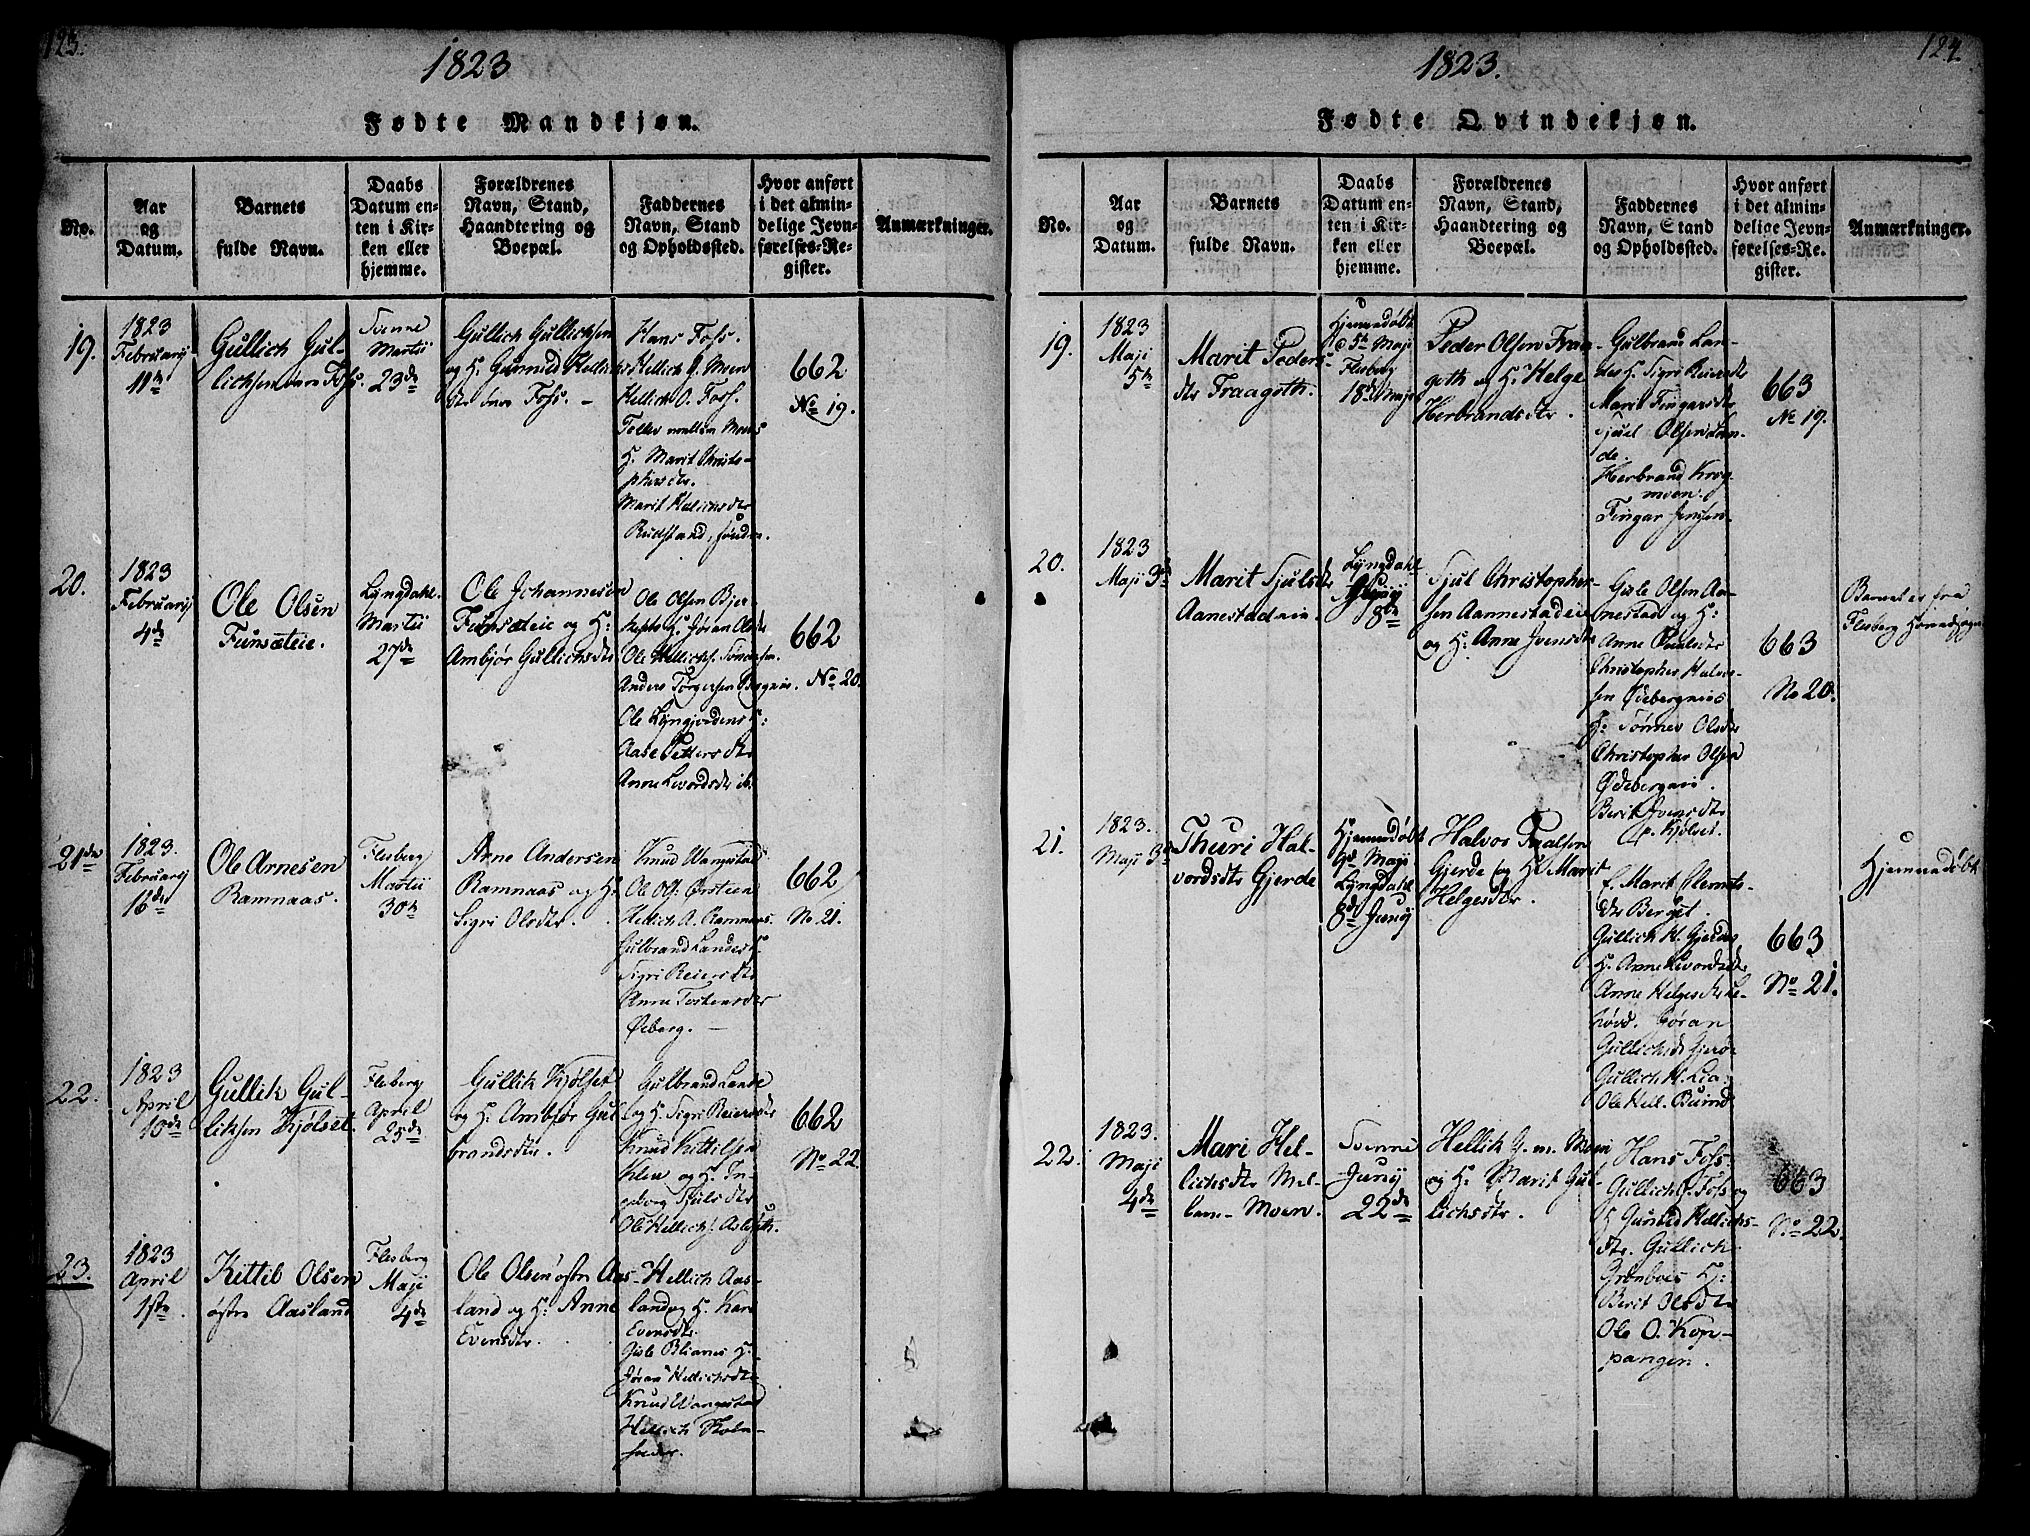 123.
1823
Fødte Mandkjøn.
No.
Aar
og
Datum.
Barnets
fulde Navn.
Daabs
Datum en-
ten i Kir-
ken eller
hjemme.
Forældrenes
Navn, Stand,
Haandtering og
Boepæl.
Faddernes
Navn, Stand
og Opholdssted.
Hvor anført
i det almin-
delige Jevn-
førelses-Re-
gister.
Anmærkninger.
19.
1823
Februarij
11te
Gullich Gul-
lichsen Foss.
Svenne
Martii
23de
Gullich Gullichsen
og H. Gunnild Hellichs
dtr Foss. -
Hans Foss.
Hellich G. Moen
Hellich O. Foss.
Tollev mellem Moen
H. Marit Christo-
phersdtr.
Marit Hellichsdtr
Rudstand,
662
No 19.
20.
1823
Februarij
4de
Ole Olsen
Funsæteie.
Lyngdahl.
Martii
27de
Ole Johannesen
Funsæteie og H.
Ambjør Gullichsdtr
Ole Olsen Bjer-
H. Jøran Olsdtr
Ole Hellichs.
Anders Torgersen
Ole H:
Aase Pettersdtr
Anne Levordsdtr ib.
662
No 20.
21de
1823.
Februarij
16de
Ole Arnesen
Ramnaas.
Flesberg
Martii
30te
Arne Andersen
Ramnaas og H.
Sigri Olsdtr.
Knud Wangestad
Ole Ols: Ørsteen
Hellich A. Ramnaas.
Gulbrand Landes H.
Sigri Reiersdtr
Anne Torstensdtr
Øeberg. -
662
No. 21.
22.
1823
April
10de
Gullik Gul-
liksen Kjølset.
Flesberg
April
25de
Gullik Kjølset
og H. Ambjør Gul-
brandsdtr.
Gulbrand Lande
og H. Sigri Reiersdtr
Knud Kittilsen
og H. In-
geborg Sjulsdtr
Ole Hellichs.
662
No 22.
23.
1823
April
1ste
Kittil Olsen
østre Aasland
Flesberg
Maji
4de
Ole Olsen østre Aas-
land og H: Anne
Evensdtr.
Hellich Aas-
land og H. Kari
Evensdtr.
Gisle Blianes H.
Jøran Hellichsdtr
Knud Wangestad
Hellich
124.
1823.
Fødte Qvindekjøn.
No.
Aar
og
Datum.
Barnets
fulde Navn.
Daabs
Datum en-
ten i Kir-
ken eller
hjemme.
Forældrenes
Navn, Stand,
Haandtering og
Boepæl.
Faddernes
Navn, Stand
og Opholdssted.
Hvor anført
i det almin-
delige Jevn-
førelses-Re-
gister.
Anmærkninger.
19.
1823
Maji
5te
Marit Peders-
dtr Traagoth.
Hjemmedøbt
d 5te Maji
Flesberg
18de Maji
Peder Olsen Traa-
goth og H. Helge
Herbrandsdtr.
Gulbrand Lan-
des H. Sigri Reiersdtr
Marit Fingarsdtr
Sjul Olsen Lan-
de.
Herbrand Krog-
moen.
Fingar Jensen
663
No 19.
20.
1823
Maji 3de
Marit Sjulsdtr
Aanestadeie.
Lyngdahl
Junij
8de
Sjul Christopher-
sen Aannestadeie
og H. Anne Ivensdtr
Gisle Olsen Aa-
nestad og H:
Anne Paulsdtr
Christopher Halvor-
sen Ødebergeie
H. Tønnes Olsdtr
Christopher Olsen
Ødebergeie.
Berit Ivensdtr
p. Kjølset.
663
No 20.
Barnet er fra
Flesberg Hovedsogn
21.
1823.
Maji 3de
Thuri Hal-
vordsdtr Gjerde
Hjemmedøbt
9de Maji
Lyngdahl
8de Junij
Halvor Paalsen
Gjerde og H. Marit
Helgesdtr.
f. Marit Clemets-
dtr Berget.
Gullich H. Gjerde
H. Anne Levordsdtr
Anne Helgesdtr Le-
hovd. Jøran
Gullichsdtr Gjerde
Gullich H. Lia.
Ole Hell. Buind
663
No 21.
Hjemmedøbt
22.
1823.
Maji
4de
Mari Hel-
lichsdtr Mel-
lem-Moen.
Svenne
Junij
22de
Hellik G. m. Moen
og H. Marit Gul-
lichsdtr.
Hans Foss.
Gullich G. Foss og
H Gunild Hellichs-
dtr. Gullich
H:
Berit Olsdtr
Ole O. Kop-
pangen.
663
No 22.